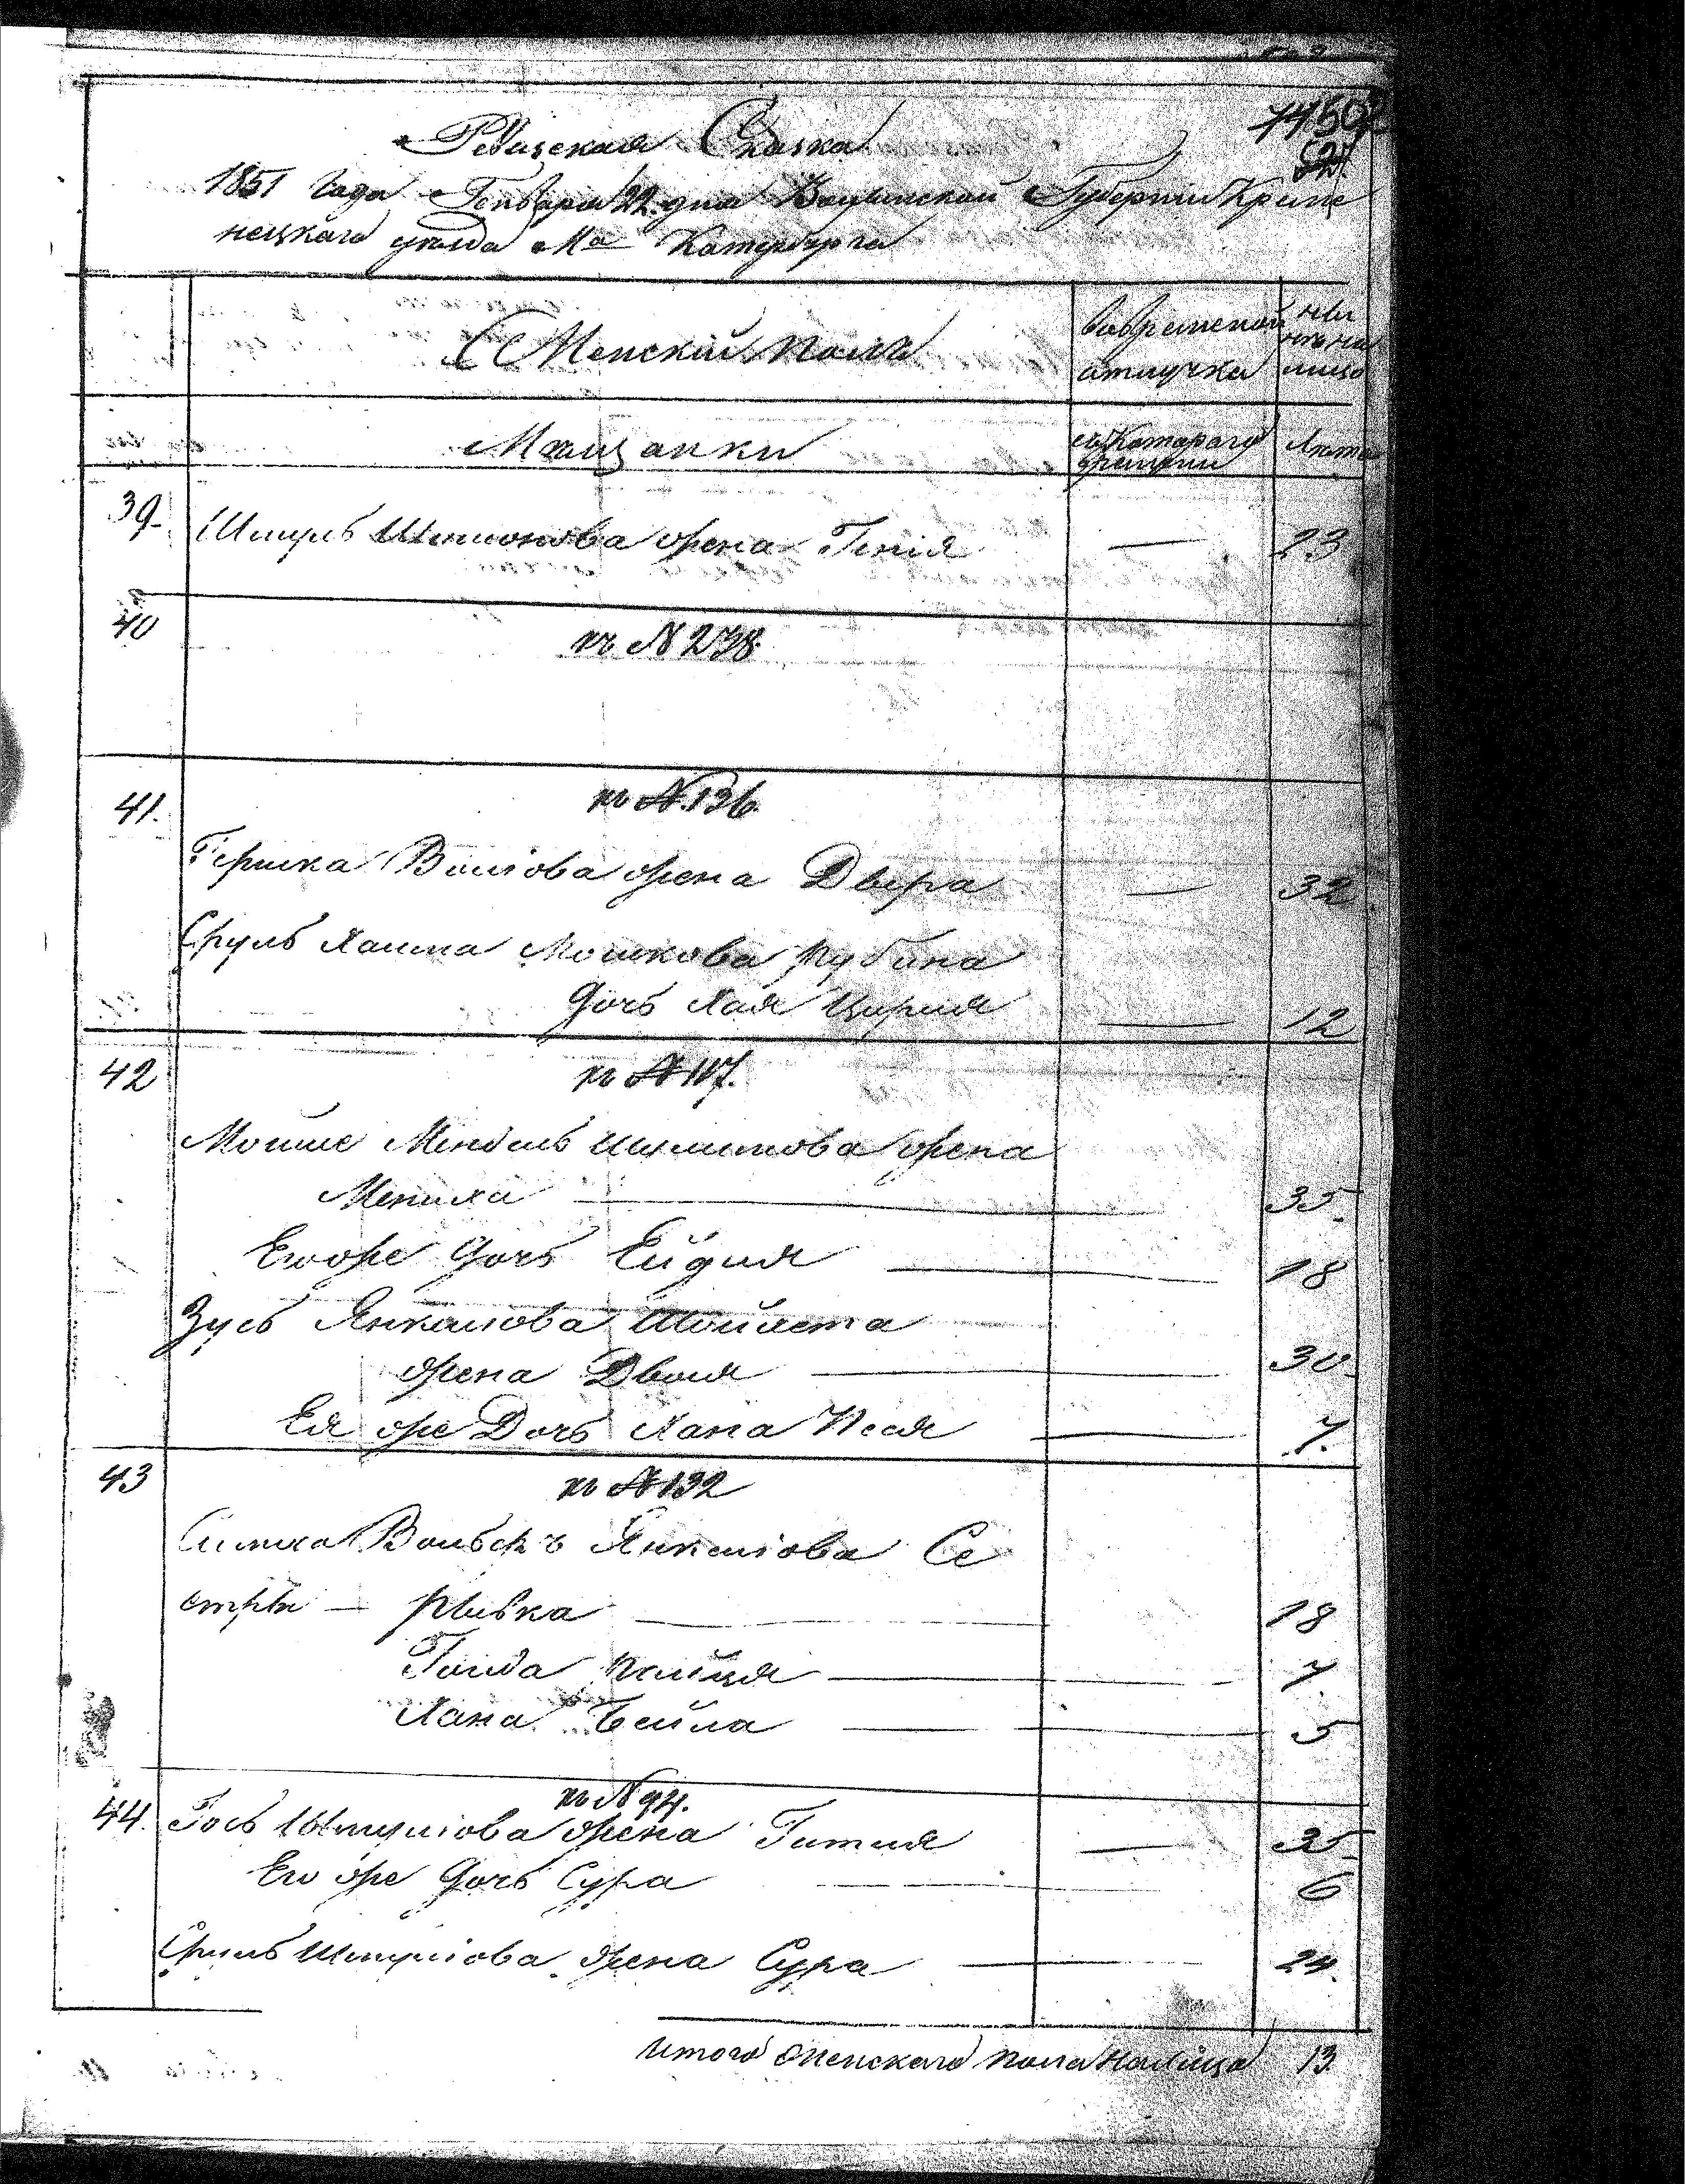 Ревизская Сказка
1851 Года Генваря 22 дня Волынской Губернии Креме
нецкаго уезда Ма Катербурга
Женский полъ
Во временной отлучке
ныне на лицо
Мещанки
съ Котораго времени
Лета
39 Шмуль Шимонова жена Геня — 23
40 къ N 238
41. къ N 136.
Гершка Волкова жена Двера — 32
Сруль Хаима Мошкова Рубина
дочь Хая Цирля — 12
42 къ N 117.
Мойше Мендель жена
Мениха — 35.
Его же дочь Ейдля — 18
Зусь Янкелиова Шойлета
жена Двойя — 30
Ея же Дочь Хана Песя — 7.
43 къ N 132
Симха Вольфъ Янкелиова Се
стры — Ривка — 18
Голда — 7
Хана Бейла — 5
44. къ N 94.
Гось Шмулиова жена Гитля — 35
Его же дочь Сура — 6
Сруль Шмулиова жена Сура — 24.
Итого Женскаго пола Налицо 13